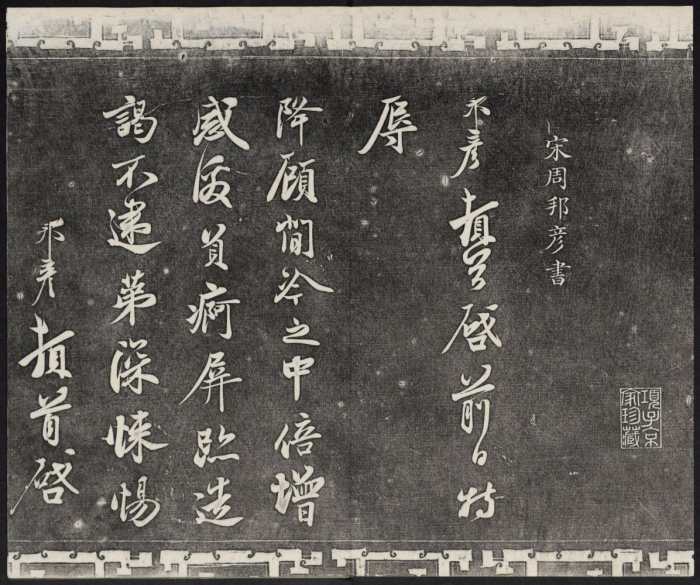 項子京
家珍藏
宋周邦彥書
邦彥頓首啓前日特
辱
降顧閒冷之中倍增
感激負痾屏跡造
謁不逮苐深悚惕
邦彥頓首啓